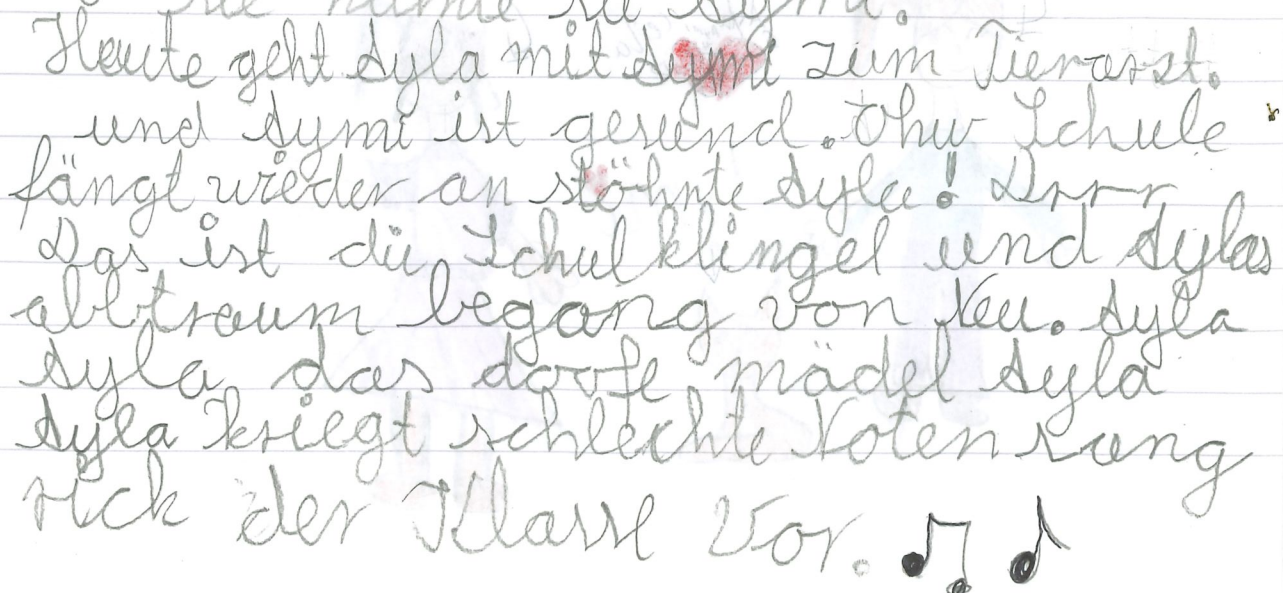 Sie nannte sie Symi.
Heute geht Syla mit Symi zum Tierarzt.
und Symi ist gesund. Ohw Schule
fängt wieder an stöhnte Syla! Drrr
Das ist die Schulklingel und Sylas
albtraum begang von Neu. Syla
Syla, das doofe mädel Syla
Syla kriegt schlechte Noten sang
rick der Klasse Vor.